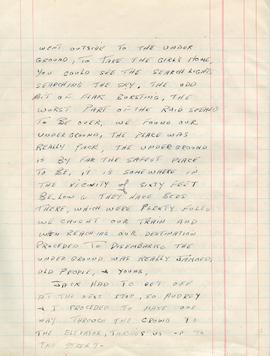 WENT OUTSIDE TO THE UNDER
GROUND, TO TAKE THE GIRLS HOME,
YOU COULD SEE THE SEARCH LIGHTS
SEARCHING THE SKY, THE ODD
BIT OF FLAK BURSTING, THE
WORST PART OF THE RAID SEEMED
TO BE OVER, WE FOUND OUR
UNDERGROUND, THE PLACE WAS
REALLY PACK, THE UNDERGROUND
IS BY FAR THE SAFEST PLACE
TO BE, IT IS SOMEWHERE IN
THE VICINITY of SIXTY FEET
BELOW & THEY HAVE BEDS
THERE, WHICH WERE PLENTY FULL,
WE CAUGHT OUR TRAIN AND
WHEN REACHING OUR DESTINATION
PROCEDED TO DISEMBARKE THE
UNDERGROUND WAS REALLY JAMMED,
OLD PEOPLE, & YOUNG,
JACK HAD TO GET OFF
AT THE NEXT STOP, SO AUDREY
& I PROCEDED TO MAKE OUR
WAY THROUGH THE CROWD TO
THE ELEVATOR, UP TO
THE STREET.